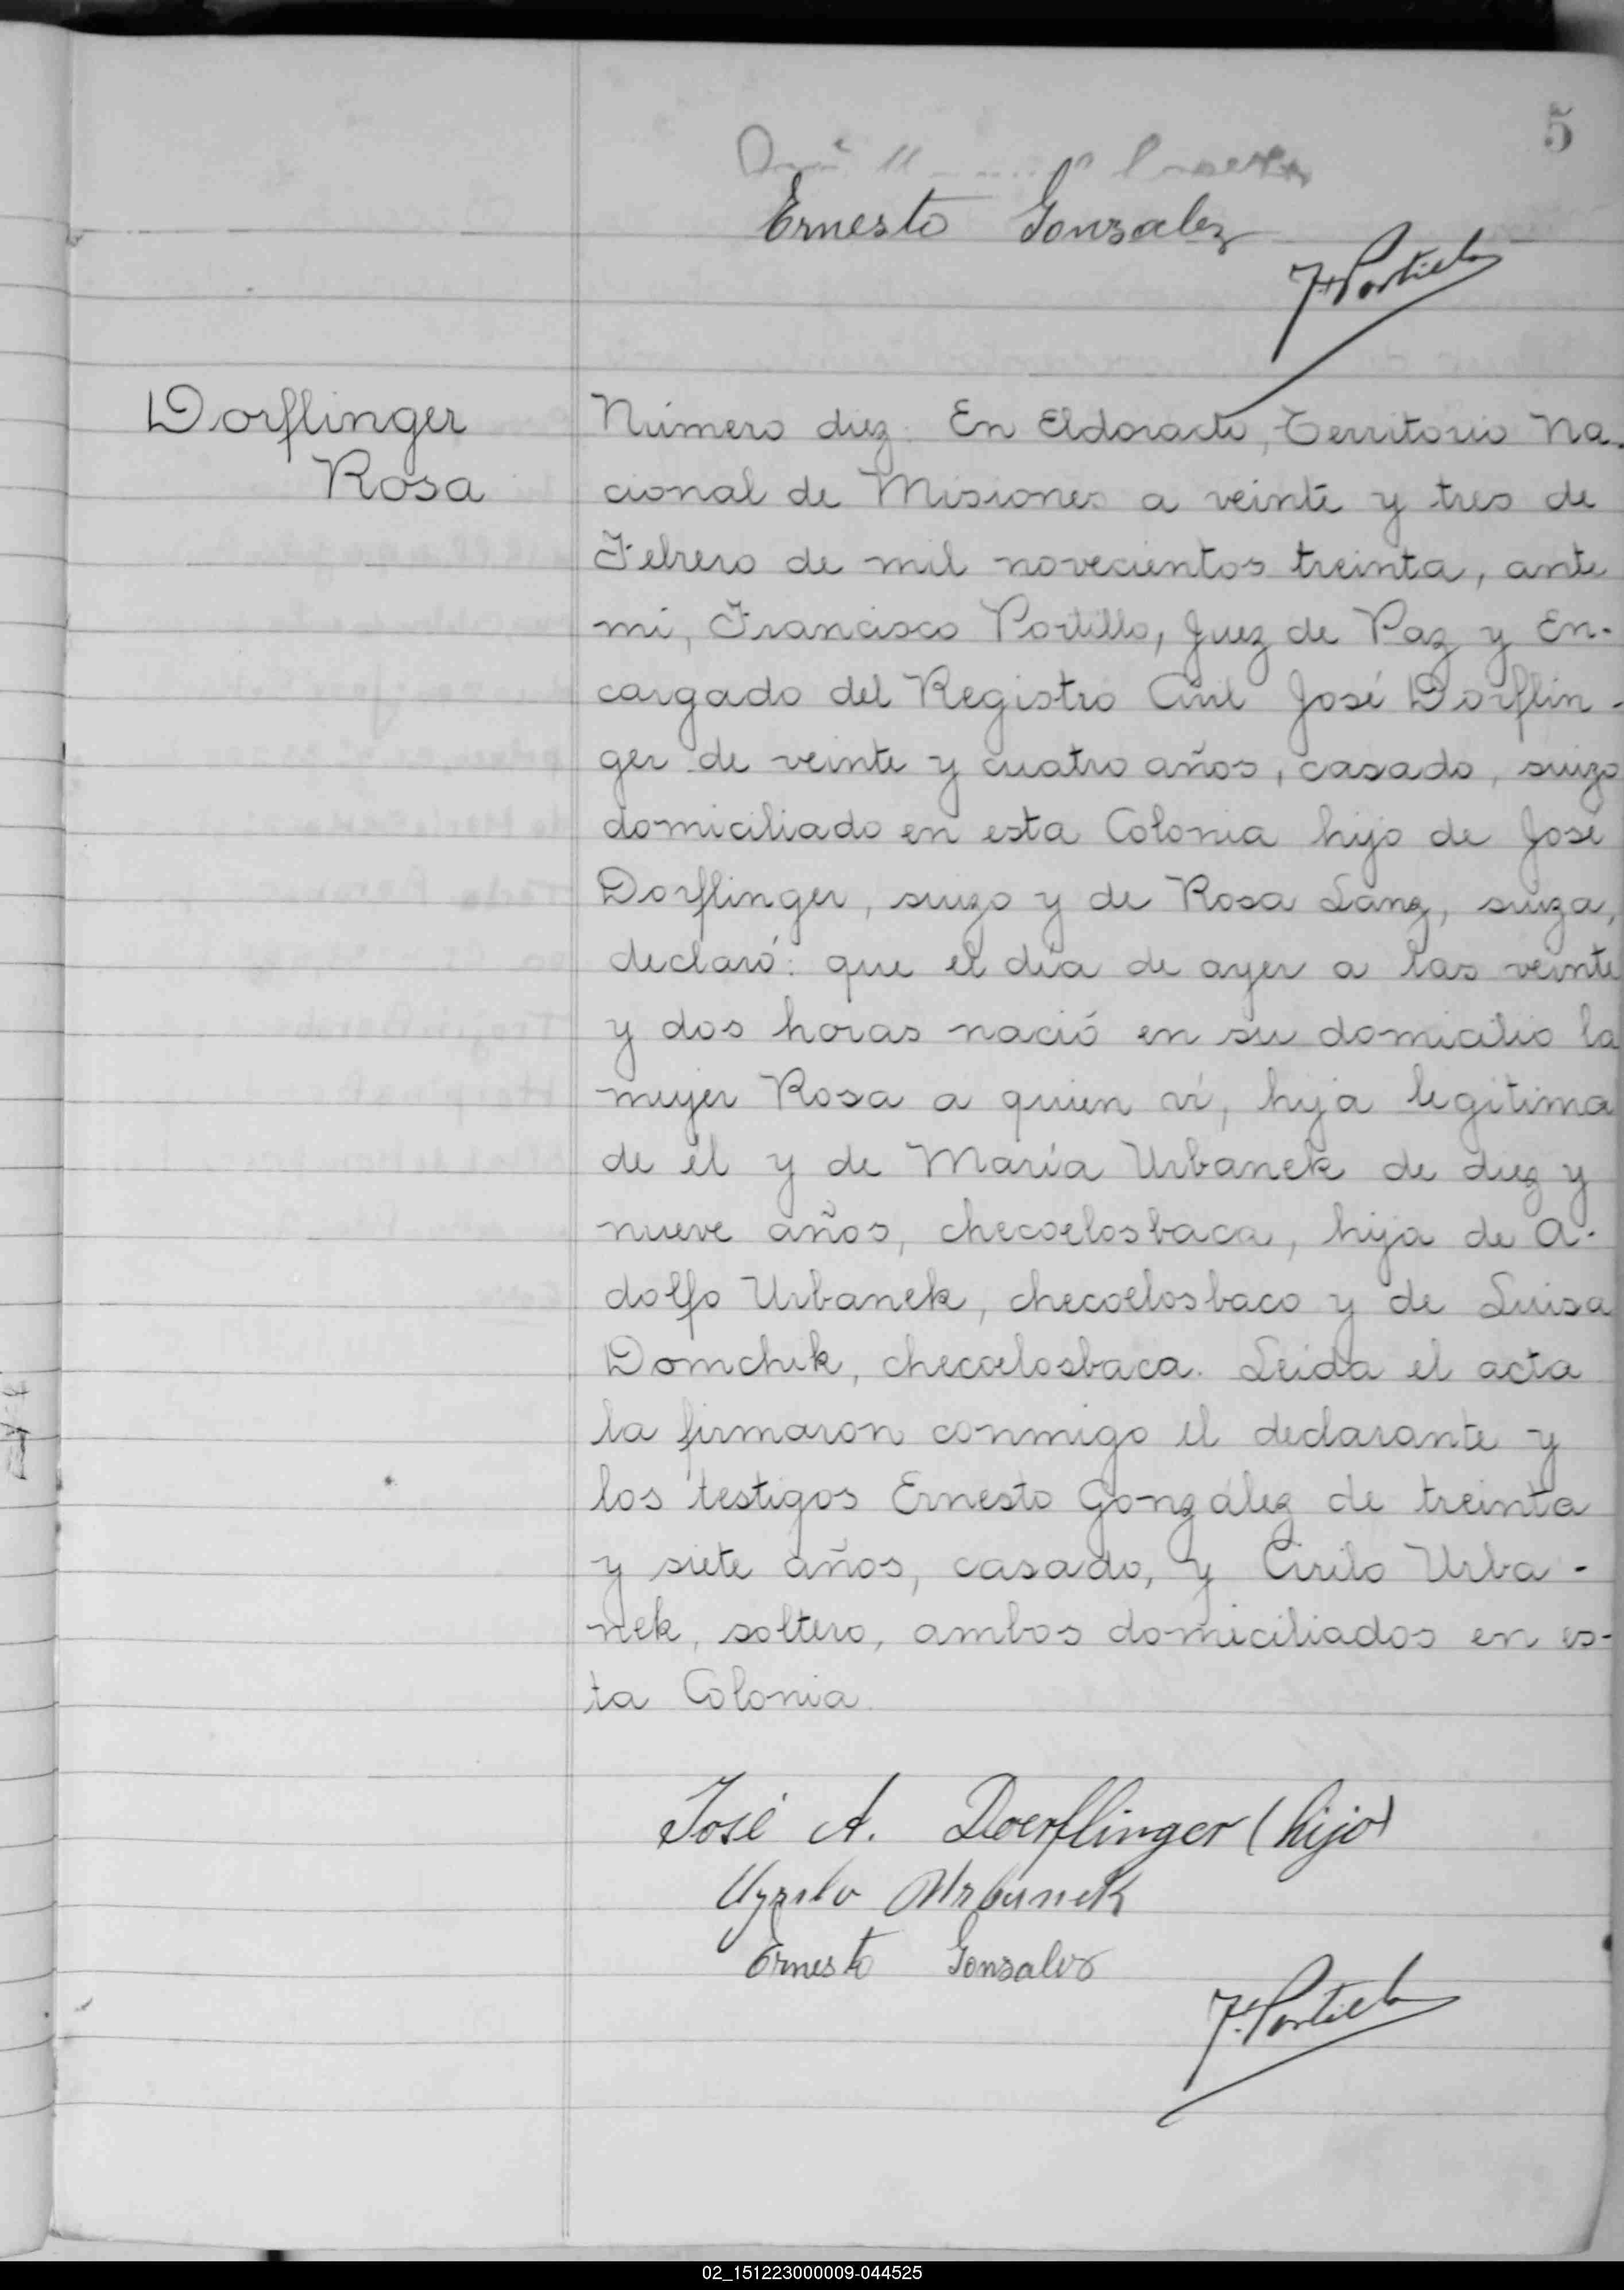 5
Ernesto Gonzalez
F. Portillo
Dorflinger
Rosa
Número diez. En Eldorado, Territorio Na-
cional de Misiones a veinte y tres de
Febrero de mil novecientos treinta, ante
mi, Francisco Portillo, Juez de Paz y En-
cargado del Registro Civil José Dorflin-
ger de veinte y cuatro años, casado, suizo
domiciliado en esta Colonia hijo de José
Dorflinger, suizo y de Rosa Lang, suiza,
declaró: que el día de ayer a las veinte
y dos horas nació en su domicilio la
mujer Rosa a quien ví, hija legitima
de él y de María Urbanek de diez y
nueve años, checoelosbaca, hija de A-
dolfo Urbanek, checoelosbaco y de Luisa
Domchik, checoelosbaca. Leida el acta
la firmaron conmigo el declarante y
los testigos Ernesto González de treinta
y siete años, casado, y Cirilo Urba-
nek, soltero, ambos domiciliados en es-
ta Colonia.
José A. Doerflinger (hijo)
Urbanek
Ernesto Gonzalez
F. Portillo
02_151223000009-044525